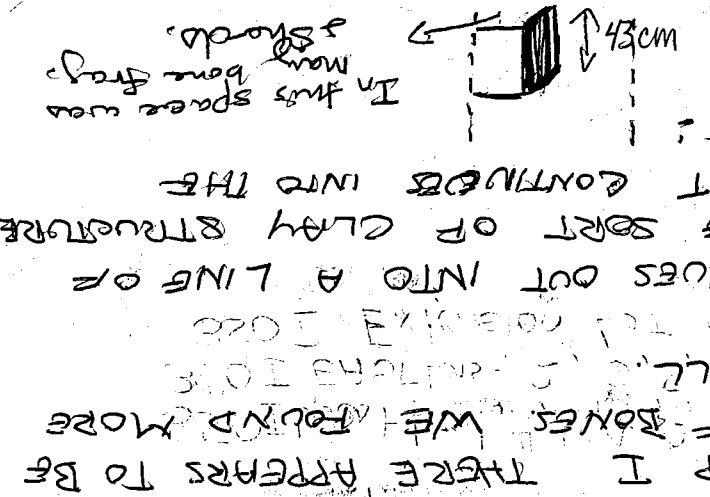 I THERE APPEARS TO BE
BONES. WE FOUND MORE
LL.
UES OUT INTO A LINE OF
SORT OF CLAY STRUCTURE
T CONTINUES INTO THE
?
In this space was
many bone frag.
& shards.
43 cm